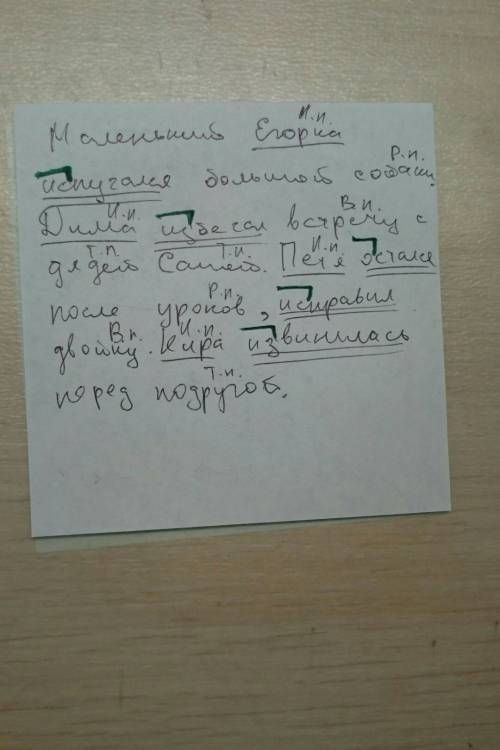 И.п.
Маленький Егорка
Р.п.
испугался большой собаки.
И.п. В.п.
Дима избегал встречу с
Т.п. Т.п. И.п.
дядей Сашей. Петя остался
Р.п.
после уроков, исправил
В.п. И.п.
двойку. Кира извинилась
Т.п.
перед подругой.